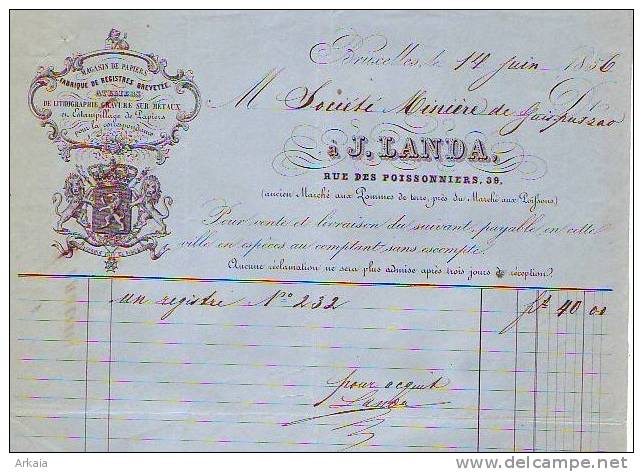 MAGASIN DE PAPIERS
FABRIQUE DE REGISTRES BREVETÉE
ATELIERS
DE LITHOGRAPHIE GRAVURE SUR METAUX
et Estampillage de Papiers
pour la correspondance
Bruxelles, le 14 juin 1856
M Société Minière de
à J. LANDA,
RUE DES POISSONNIERS, 39,
(ancien Marché aux Pommes de terre, près du Marché aux Poissons)
Pour vente et livraison du suivant, payable en cette
ville en espèces au comptant sans escompte.
Aucune réclamation ne sera plus admise après trois jours de réception.
un registre No 232 40 00
pour acquit
Landa
Arkaia
delcampe.net